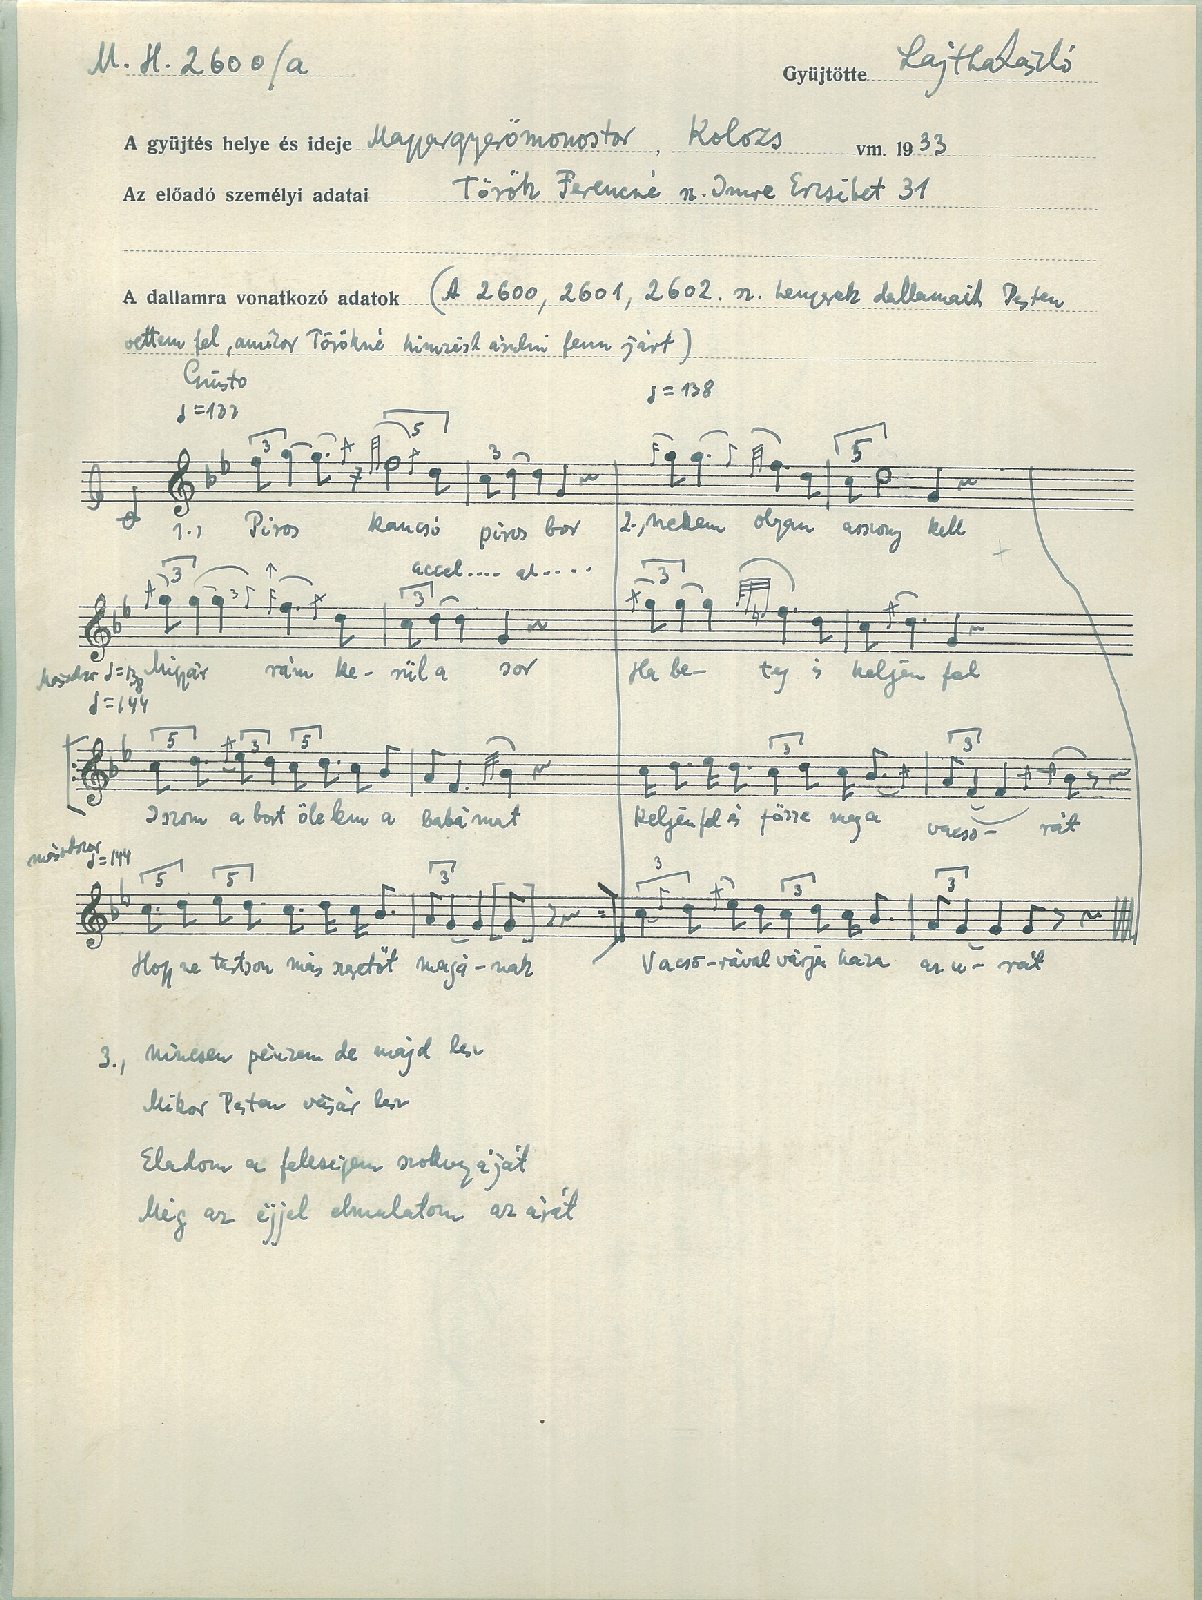 M. H. 2600/a
Gyüjtötte Lajtha László
A gyüjtés helye és ideje Magyargyerőmonostor, Kolozs vm. 1933
Az előadó személyi adatai Török Ferencné sz. Imre Erzsébet 31
A dallamra vonatkozó adatok (A 2600, 2601, 2602. sz. hengerek dallamait Pesten
vettem fel, amikor Törökné hímzést árulni fenn járt)
Giusto
♩=133
♩=138
3 5 3 5
1., Piros kancsó piros bor 2., Nekem olyan asszony kell
accel....
3 3 3 3
Migyár rám ke- rül a sor Ha be- teg is keljen fel
♩=144
5 3 5 3 3
Iszom a bort ölelem a babámat Keljen fel és főzze meg a vacso- rát
másodszor ♩=144
5 5 3 3 3 3
Hogy ne tartson más szeretőt magá-nak Vacso-rával várja haza az u- rát
3., Nincsen pénzem de majd lesz
Mikor Pesten vásár lesz
Eladom a feleségem szoknyáját
Még az éjjel elmulatom az árát